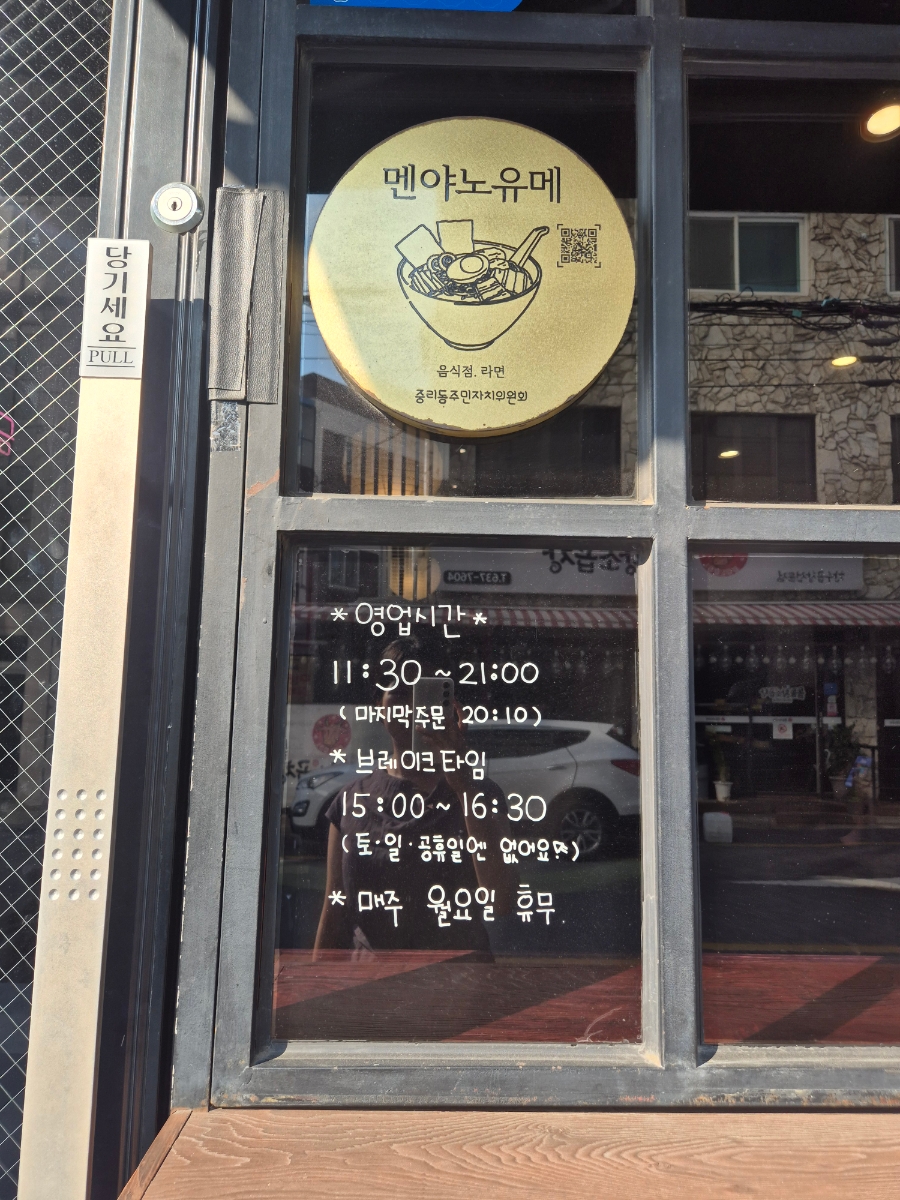 멘야노유메
음식점, 라면
중리동주민자치위원회
당기세요
PULL
T.637-7604
*영업시간*
11:30 ~ 21:00
(마지막주문 20:10)
* 브레이크타임
15:00 ~ 16:30
(토·일·공휴일엔 없어요)
* 매주 월요일 휴무.